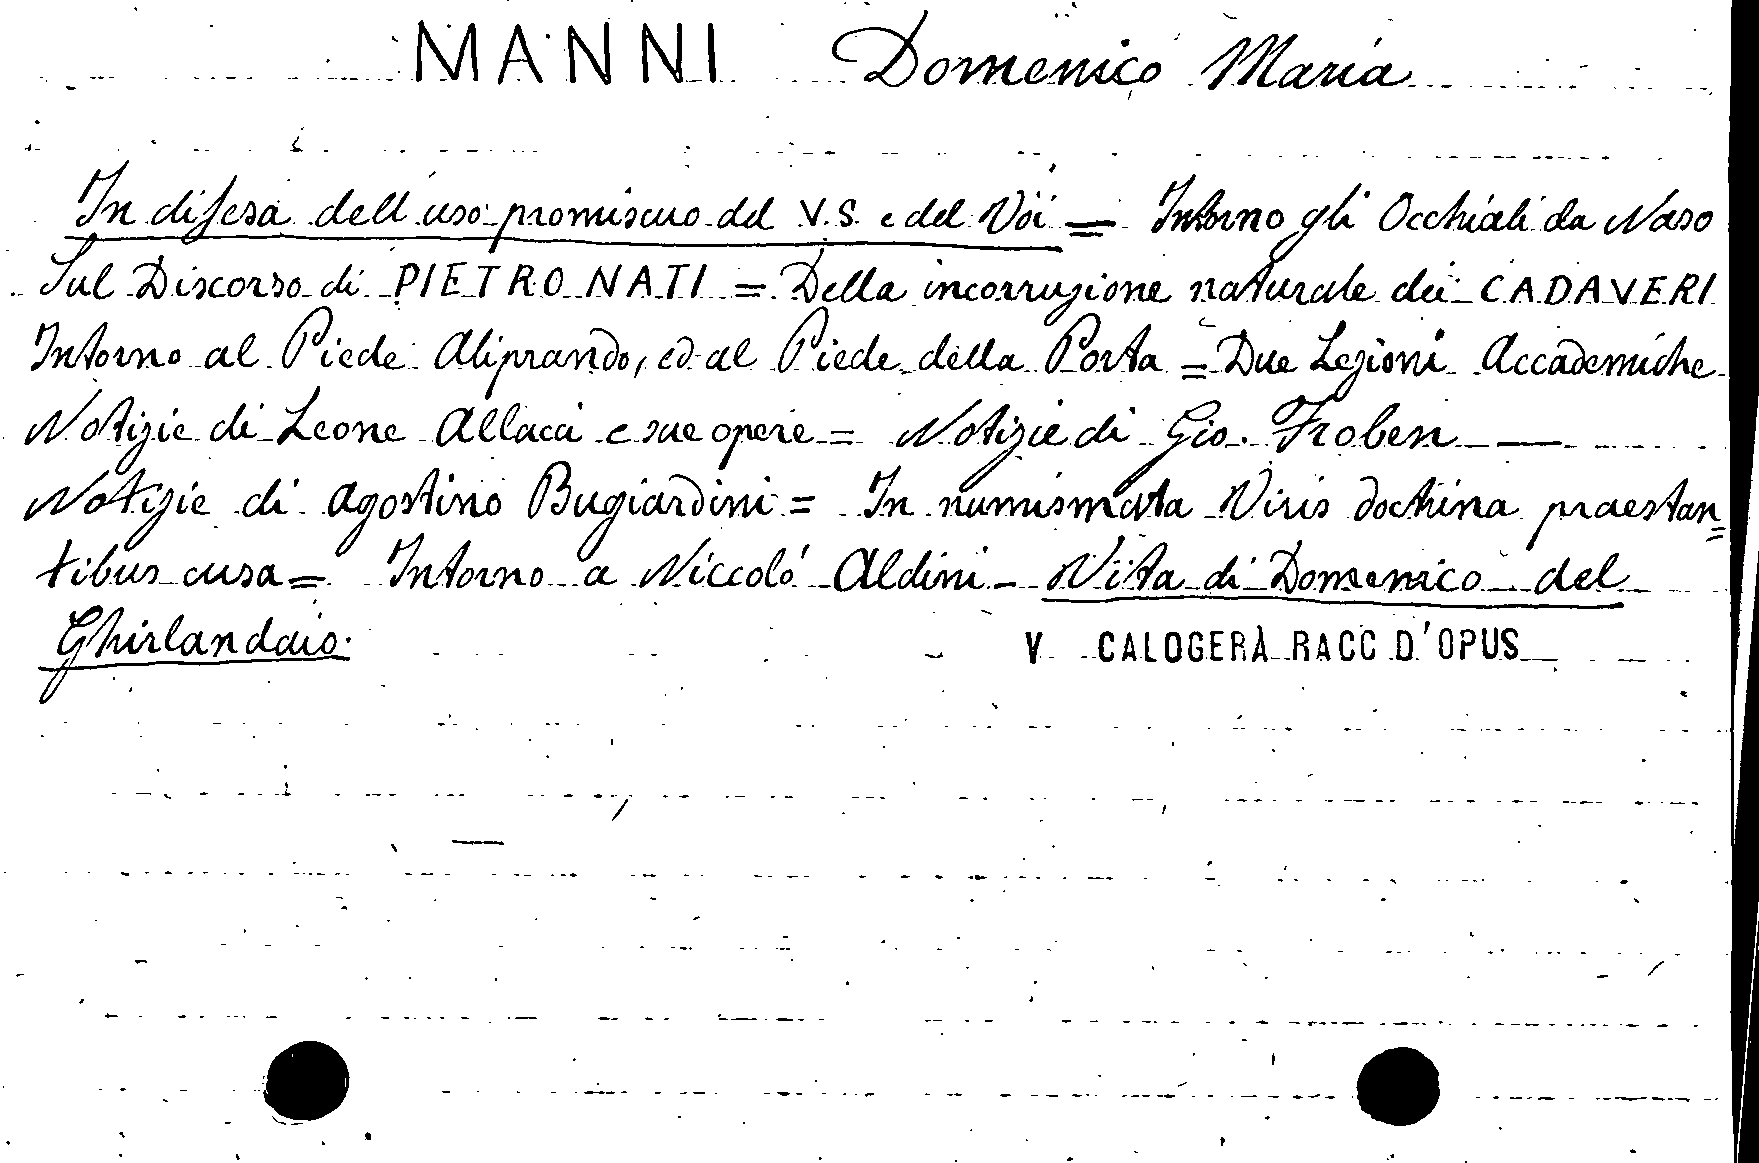 MANNI Domenico Maria
In difesa dell'uso promiscuo del V.S. e del Voi = Intorno gli Occhiali da Naso
Sul Discorso di PIETRO NATI = Della incorruzione naturale dei CADAVERI
Intorno al Piede Aliprando, ed al Piede della Porta = Due Lezioni Accademiche
Notizie di Leone Allaci e sue opere = Notizie di Gio. Froben —
Notizie di Agostino Bugiardini = In numismata Viris doctrina praestan=
tibus cusa = Intorno a Niccoló Aldini - Vita di Domenico del
Ghirlandaio.
V CALOGERÀ RACC D'OPUS